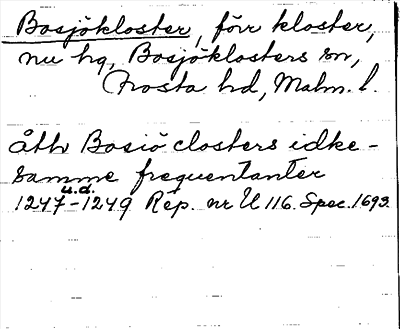 Bosjökloster, förr kloster,
nu hg, Bosjöklosters sn,
Frosta hd, Malm. l.
åth Bosiö closters idke-
samme frequentanter
u.d.
1247-1249 Rep. nr U 116. Spec. 1693.